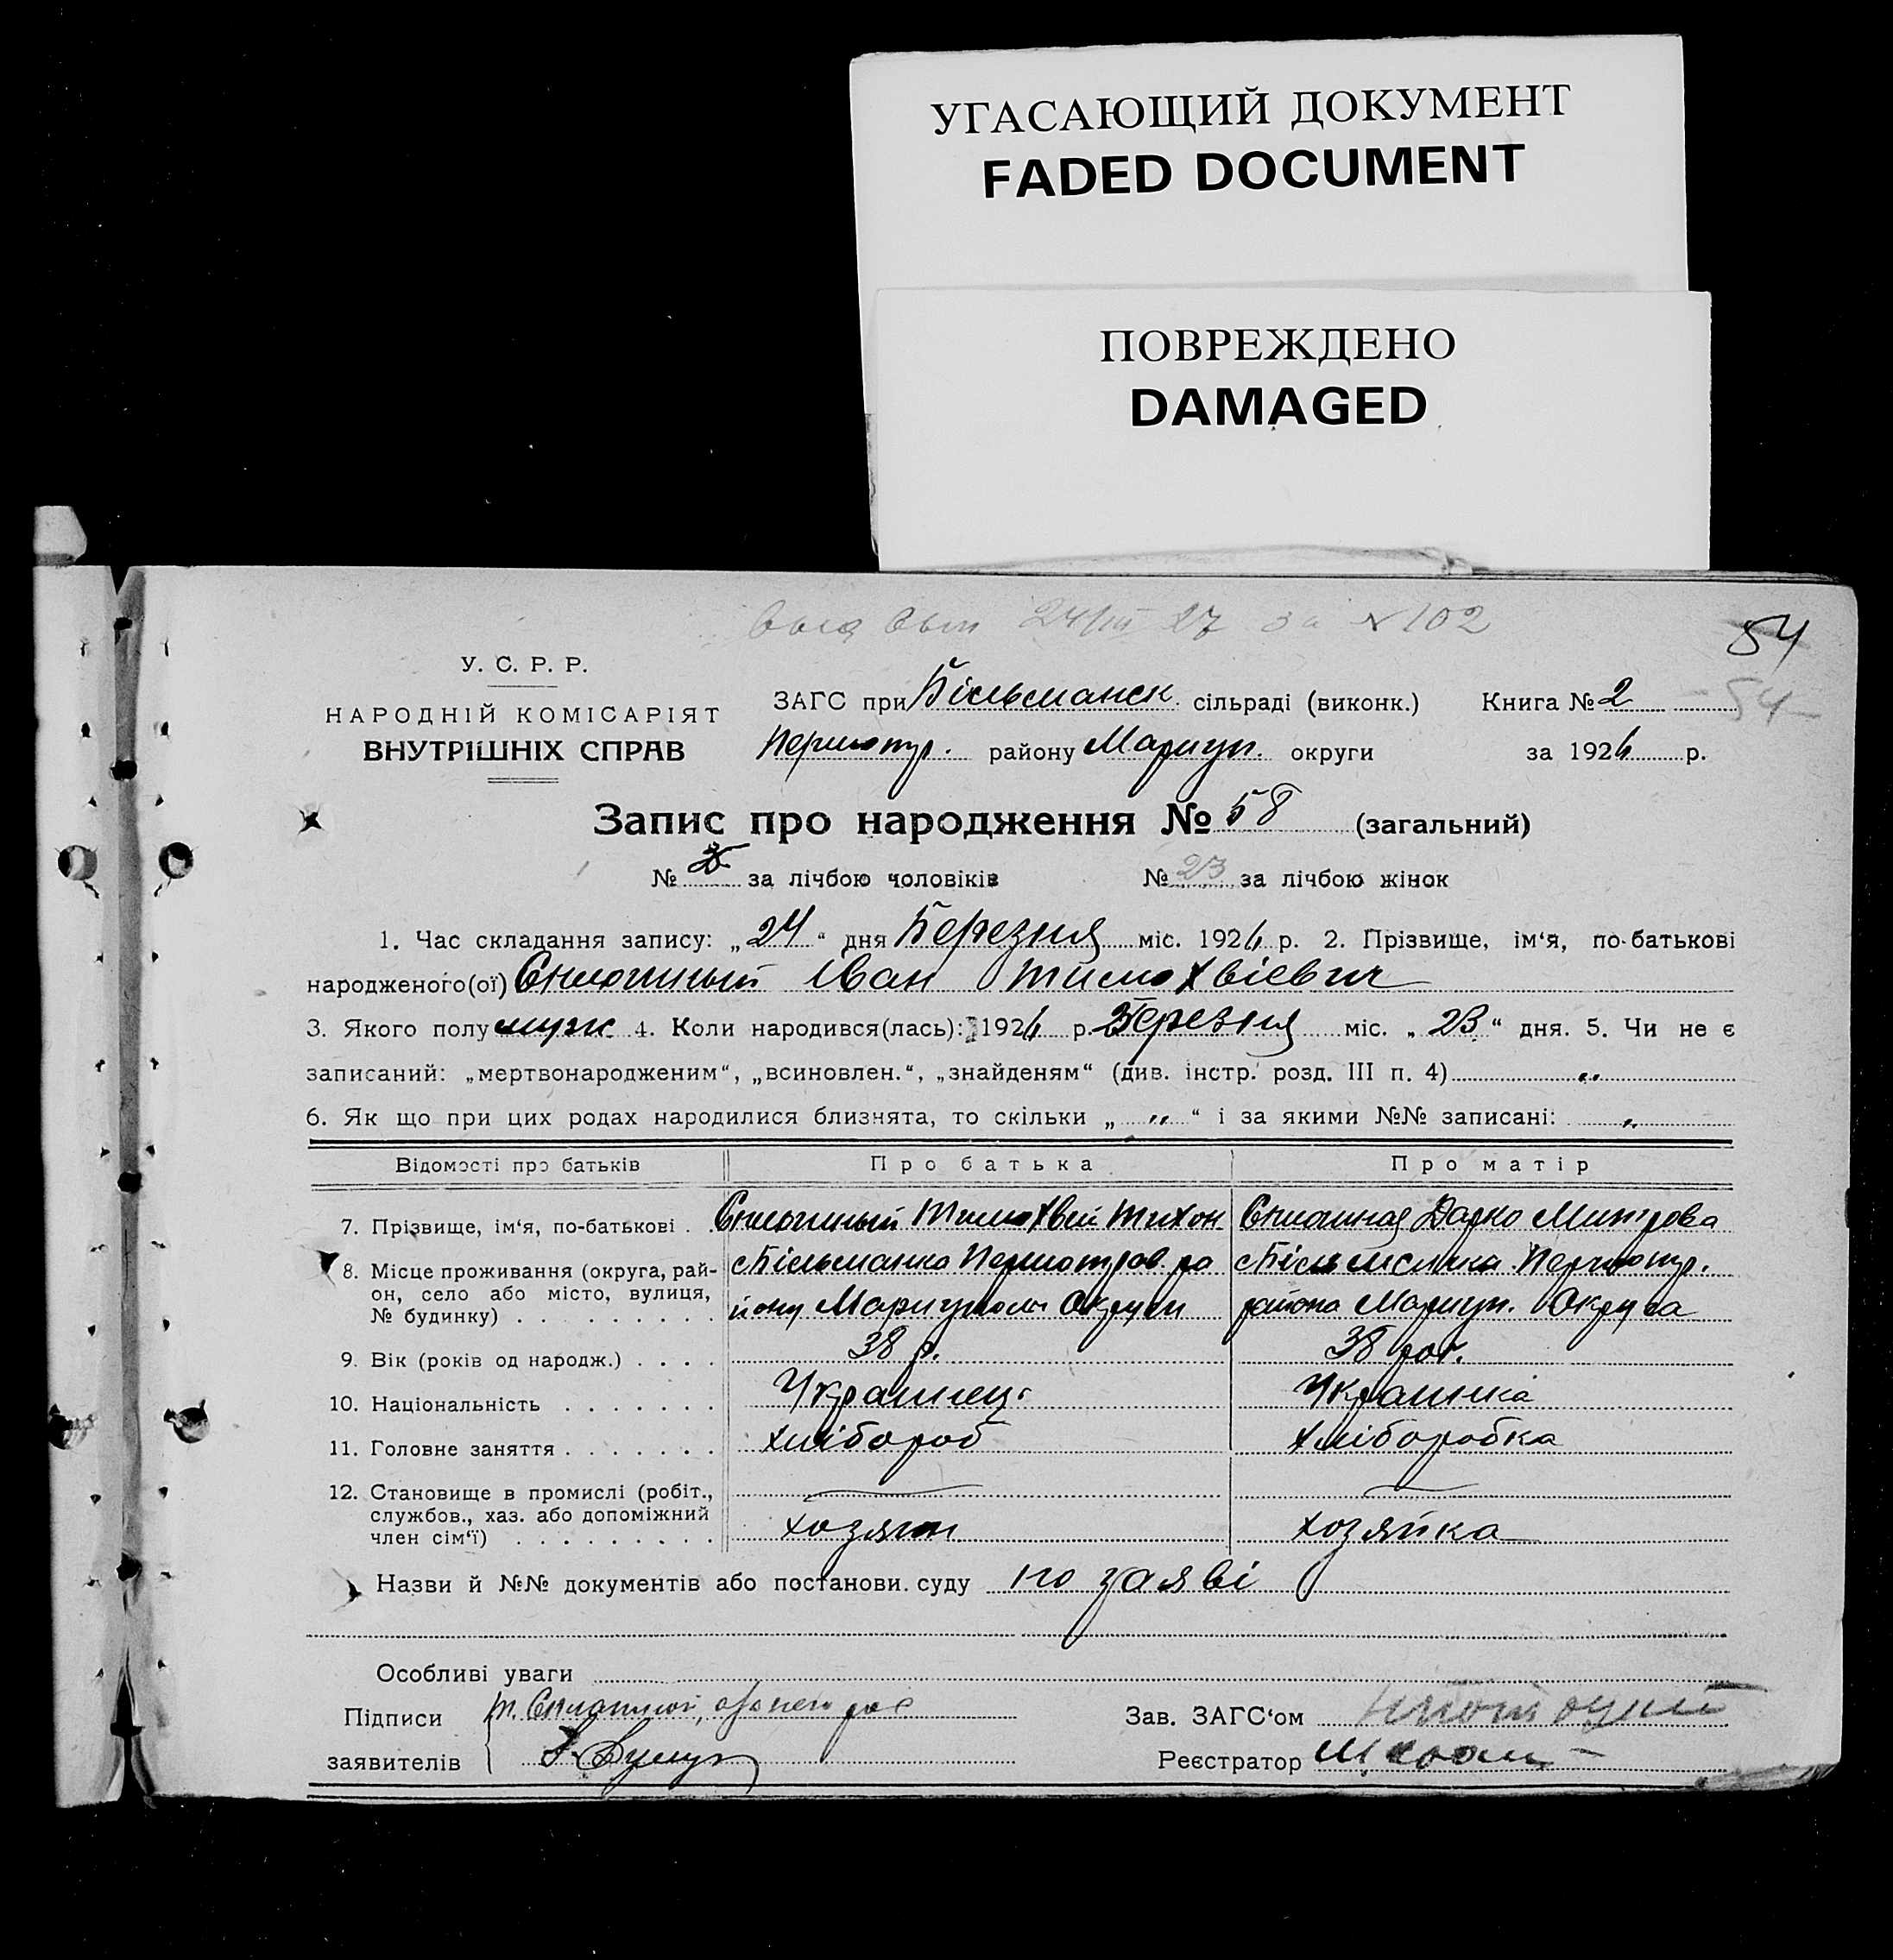 УГАСАЮЩИЙ ДОКУМЕНТ
FADED DOCUMENT
ПОВРЕЖДЕНО
DAMAGED
24/III 27 за № 102
54
У. С. Р. Р.
НАРОДНІЙ КОМІСАРІЯТ
ВНУТРІШНІХ СПРАВ
ЗАГС при Більманск. сільраді (виконк.) Книга № 2 54
Першотр. району Мариуп. округи за 1926 р.
Запис про народження № 58 (загальний)
№ за лічбою чоловіків № 23 за лічбою жінок
1. Час складання запису: „24“ дня Березня міс. 1926 р. 2. Прізвище, ім‘я, по-батькові
народженого(ої) Іван Тимохвієвич
3. Якого полу муж 4. Коли народився(лась): 1926 р. Березня міс. „23“ дня. 5. Чи не є
записаний: „мертвонародженим“, „всиновлен.“, „знайденям“ (див. інстр. розд. III п. 4) „
6. Як що при цих родах народилися близнята, то скільки „ „ “ і за якими №№ записані: „
Відомості про батьків Про батька Про матір
7. Прізвище, ім‘я, по-батькові . . Тимохвей Тихон Дарко Митрова
8. Місце проживання (округа, рай-
он, село або місто, вулиця,
№ будинку) . . . . . . . . .
с Більманка Першотрав. ра
йону Мариуполь Округи
с Більманка Першотр.
района Мариуп. Округа
9. Вік (років од народж.) . . . . 38 р. 38 рок.
10. Національність . . . . . . . Украинец Украинка
11. Головне заняття . . . . . . . хлібороб хліборобка
12. Становище в промислі (робіт.,
службов., хаз. або допоміжний
член сім‘ї) . . . . . . . . .
хозяин хозяйка
Назви й №№ документів або постанови суду по заяві
Особливі уваги
Підписи
заявителів
Зав. ЗАГС‘ом
Реєстратор